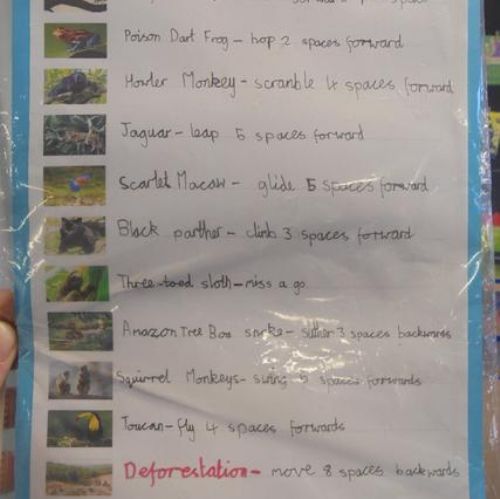 Poison Dart Frog - hop 2 spaces forward
Howler Monkey - scramble 4 spaces forward
Jaguar - leap 5 spaces forward
Scarlet Macaw - glide 5 spaces forward
Black panther - climb 3 spaces forward
Three-toed sloth - miss a go
Amazon Tree Boa snake - slither 3 spaces backwards
Squirrel Monkeys - swing spaces forwards
Toucan - fly 4 spaces forwards
Deforestation - move 8 spaces backwards